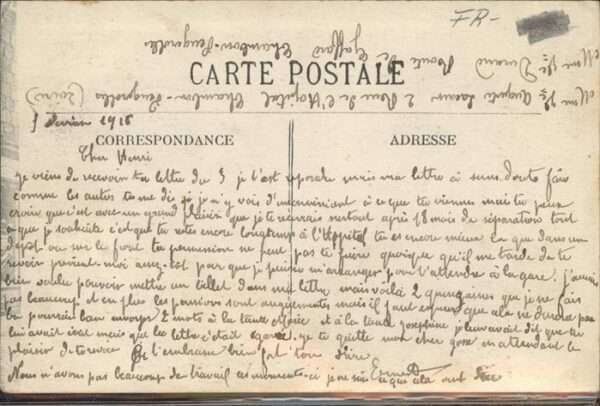 FR-
Mme Vve Durand Route de Gaffard Chambon-Feugerolles
Mme Vve Augusta 2 Rue de l'Hôpital Chambon-Feugerolles (Loire)
CARTE POSTALE
février 1916
CORRESPONDANCE
ADRESSE
Cher Henri
Je viens de recevoir ta lettre du 5 je t'est ma lettre a sans doute fair
comme les autres tu me dis je y vois d'inconvénient à ce que tu viennes mais tu peux
croire que c'est avec un grand plaisir que je te reverrais surtout après 18 mois de séparation tout
ce que je souhaite c'est que tu reste encore longtemps à l'Hôpital tu es encore mieux la que dans un
dépot ou sur le front ta permission ne peut pas te fuire quoique qu'il me tarde de te
revoir previent-moi aussi-tôt pour que je puisse m'arranger pour t'attendre à la gare. j'aurais
bien voulu pouvoir mettre un billet dans ma lettre mais voilà 2 quinzaines que je ne fais
pas beaucoup et en plus les pensions sont augmentées mais il faut que cela ne durera pas
tu pourrais bien envoyer 2 mots à la tante et à la tante Josephine je leur avait dit que tu
lui avait écrit mais que les lettre c'était égaré. je te quitte mon cher gose en attendant le
plaisir de te revoir Je t'embrasse bien fort ton frère
Ernest
Nous n'avons pas beaucoup de travail ces moments-ci